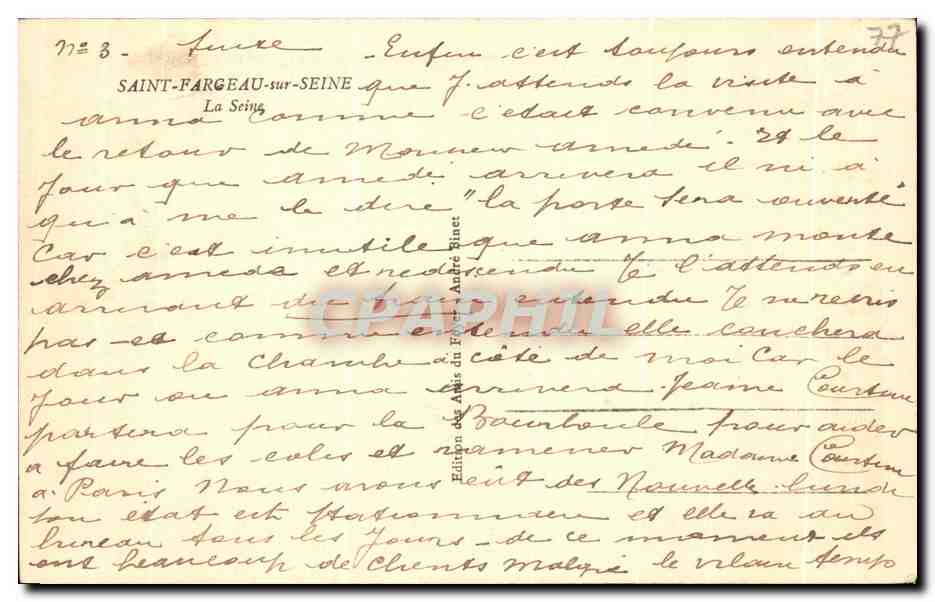 77
Nº 3 - suite - Enfin c'est toujours entendu
SAINT-FARGEAU-sur-SEINE
La Seine
que J. attends la visite à
anna comme c'était convenu avec
le retour de Monsieur amedé - et le
Jour que amedé arrivera il ni à
qu'à me le dire "la porte sera ouverte"
Car c'est inutile que anna monte
chez amedé et redescendu Je l'attends en
arrivant du entendu Je ne
pas - et comme entendu elle couchera
dans la chambre à côté de moi Car le
Jour ou anna arrivera Jeanne
partira pour la Bourboule pour aider
a faire les colis et ramener Madame
a Paris Nous avons eût des Nouvelle lundi
son état est Stationnaire et elle va au
bureau tous les Jours - de ce moment ils
ont beaucoup de Clients Malgré le vilain temps
Edition des Amis du Foyer - André Binet
CPAPHIL